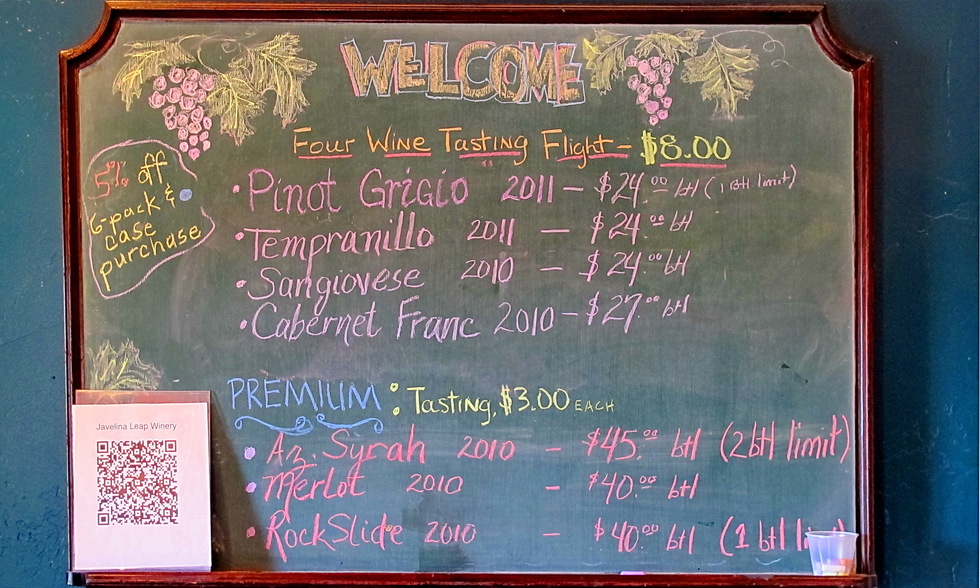 WELCOME
Four Wine Tasting Flight - $8.00
5% off
6-pack &
case
purchase
• Pinot Grigio 2011 - $24.00 btl (1 btl limit)
• Tempranillo 2011 - $24.00 btl
• Sangiovese 2010 - $24.00 btl
• Cabernet Franc 2010 - $27.00 btl
PREMIUM: Tasting, $3.00 EACH
• Az. Syrah 2010 - $45.00 btl (2 btl limit)
• Merlot 2010 - $40.00 btl
• RockSlide 2010 - $40.00 btl (1 btl
Javelina Leap Winery